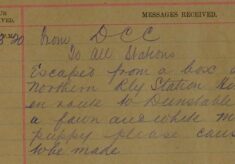 MESSAGES RECEIVED.
From D C C
To All Stations
Escaped from a box
Northern Rly Station
en route to Dunstable
a fawn and white
puppy please
to be made